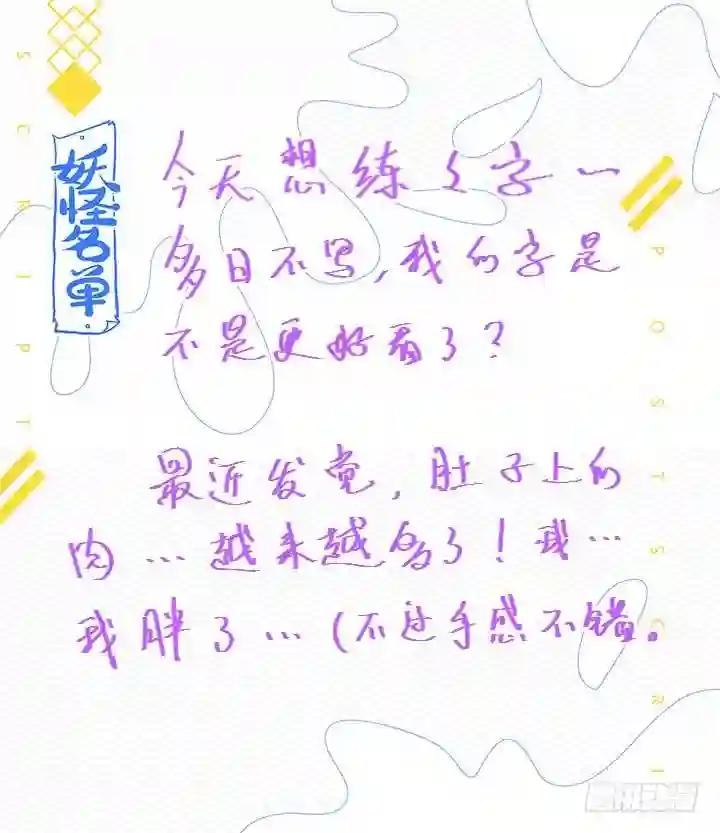 SCRIPT
妖怪名单
今天想练练字~
多日不写,我的字是
不是更好看了?
最近发觉,肚子上的
肉…越来越多了!我…
我胖了…(不过手感不错。
POSTSCRI